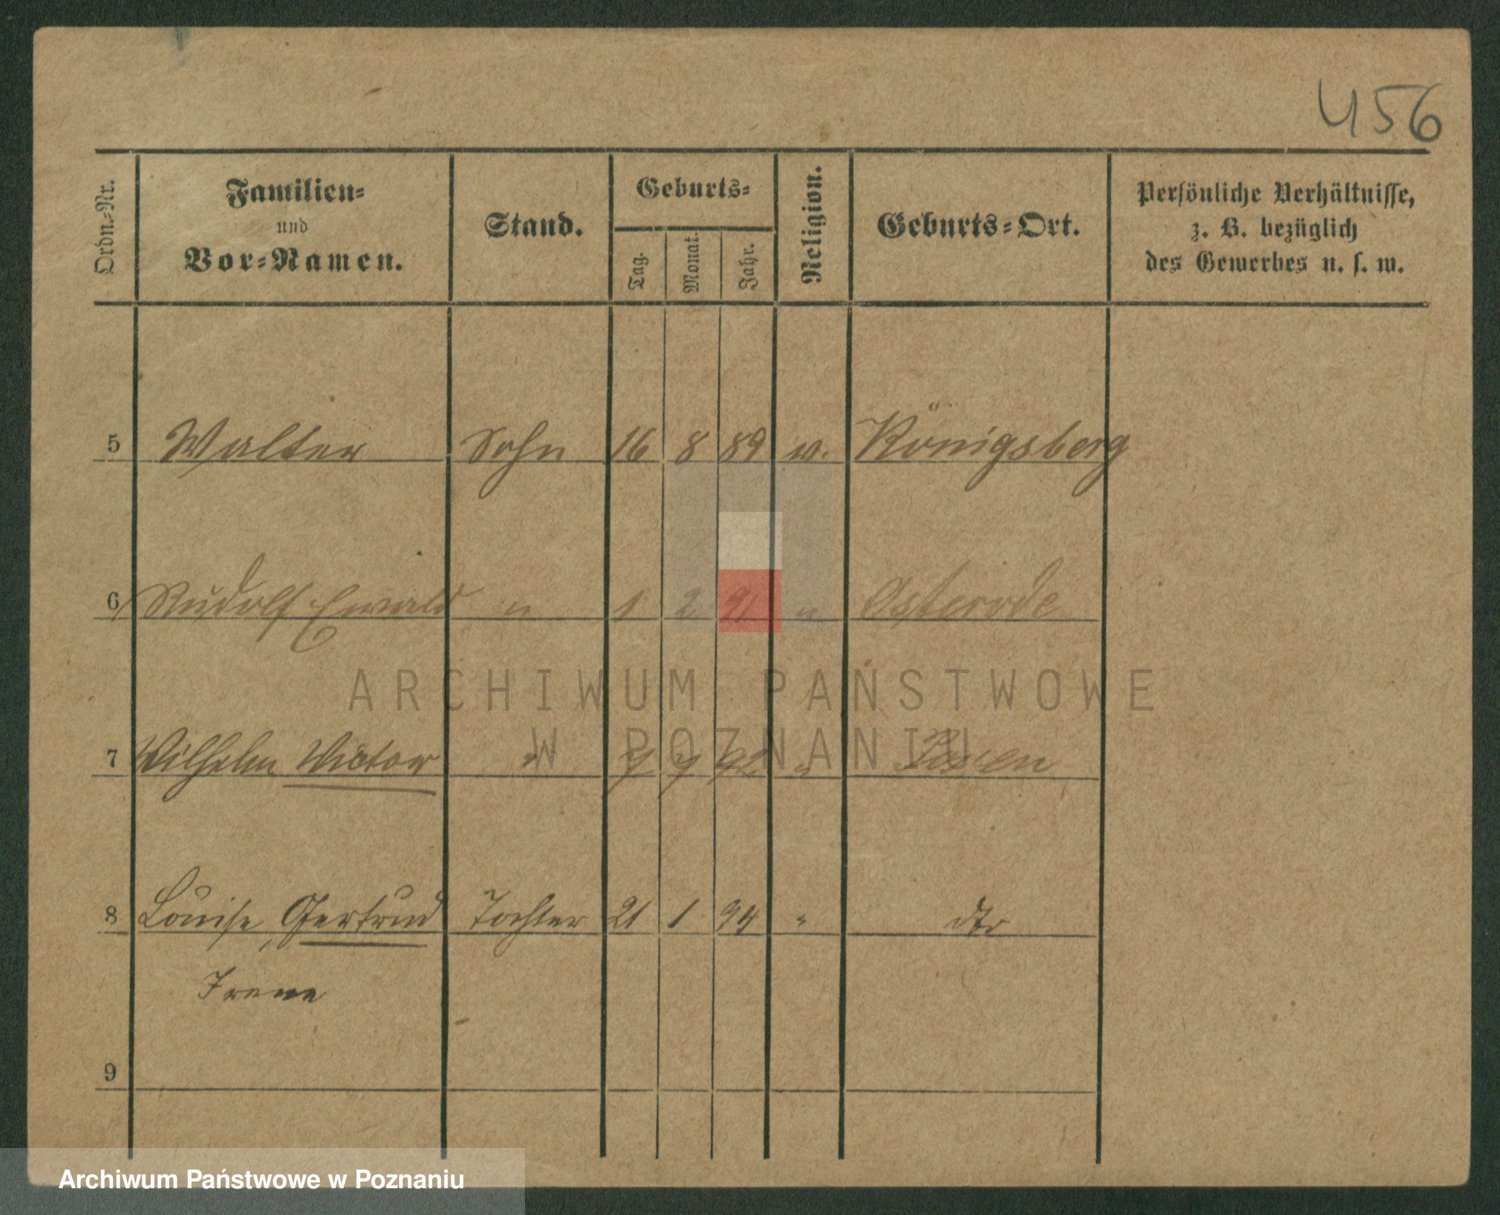 456
Ordn.-Nr.
Familien-
und
Vor-Namen.
Stand.
Geburts-
Tag.
Monat.
Jahr.
Religion.
Geburts-Ort.
Persönliche Verhältnisse,
z. B. bezüglich
des Gewerbes u. s. w.
5 Walter Sohn 16 8 89 Königsberg
6 Rudolf Ewald " 1 2 91 " Osterode
7 Wilhelm Victor " 9 7 92 " Posen
8 Louise, Gertrud Tochter 21 1 94 " dto
Irene
9
ARCHIWUM PAŃSTWOWE
W POZNANIU
Archiwum Państwowe w Poznaniu